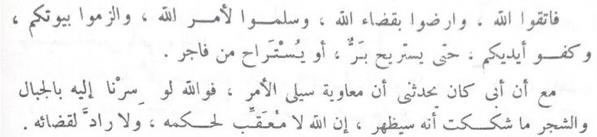 فاتقوا الله ، وارضوا بقضاء الله ، وسلمـوا لأمـر الله ، والزمـوا بيوتكم ،
وكفـو أيديكم ، حتى يستريح بَـرٌّ ، أو يُسْتَـراح من فاجر .
مع أن أبي كان يحدثني أن معاوية سيلى الأمر ، فوالله لو سِرْنا إليه بالجبال
والشجر ما شككت أنه سيظهر ، إن الله لا مُعَقِّب لحكمه ، ولا رادَّ لقضائه .